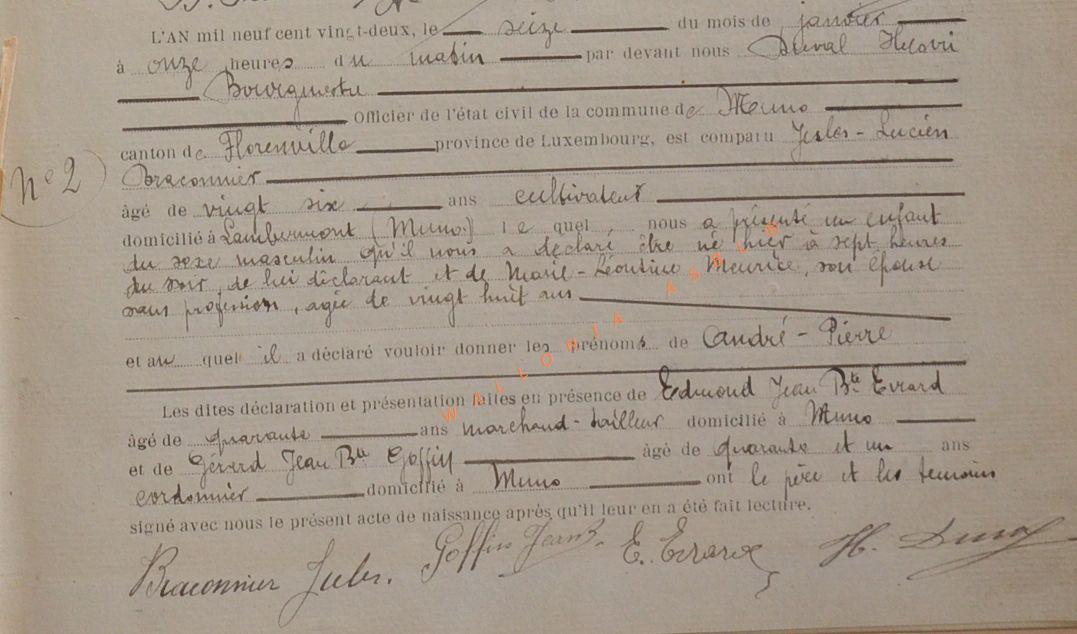 L'AN mil neuf cent vingt-deux, le seize du mois de janvier
à onze heures du matin par devant nous Duval Henri
Bourgmestre
Officier de l'état civil de la commune de Muno
canton de Florenville province de Luxembourg, est comparu Jules-Lucien
Braconnier
N° 2
âgé de vingt six ans cultivateur
domicilié à Lambermont (Muno) lequel, nous a présenté un enfant
du sexe masculin qu'il nous a déclaré être né hier à sept heures
du soir, de lui déclarant et de Marie-Léontine Meurice, son épouse
sans profession, agée de vingt huit ans
et auquel il a déclaré vouloir donner les prénoms de André-Pierre
WALLONIA ASBL
Les dites déclaration et présentation faites en présence de Edmond Jean Bte Evrard
âgé de quarante ans marchand-tailleur domicilié à Muno
et de Gérard Jean Bte Goffin âgé de quarante et un ans
cordonnier domicilié à Muno ont le père et les temoins
signé avec nous le présent acte de naissance après qu'il leur en a été fait lecture.
Braconnier Jules. Goffin Jean B. E. Evrard H. Duval